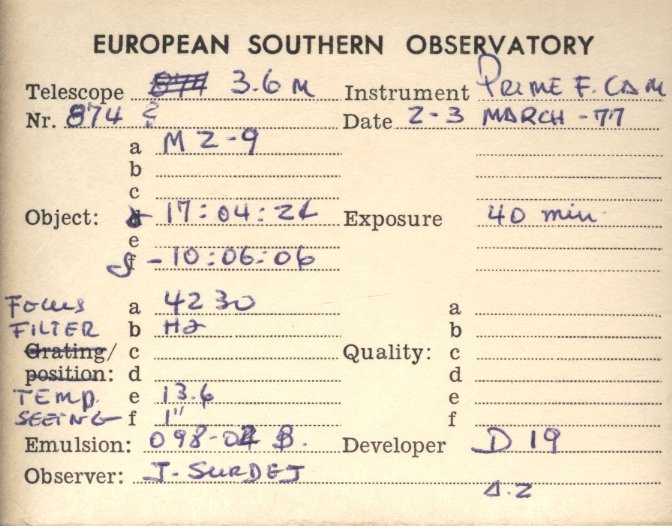 EUROPEAN SOUTHERN OBSERVATORY
Telescope 3.6 M Instrument PRIME F. CAM
Nr. 874 Date 2-3 MARCH -77
a M 2-9
b
c
Object: α 17:04:22 Exposure 40 min.
e
δ f -10:06:06
Focus a 4230 a
FILTER b Hα b
Grating/ c Quality: c
position: d d
TEMP. e 13.6 e
SEEING f 1" f
Emulsion: 098-02 B. Developer D 19
Observer: J. SURDEJ